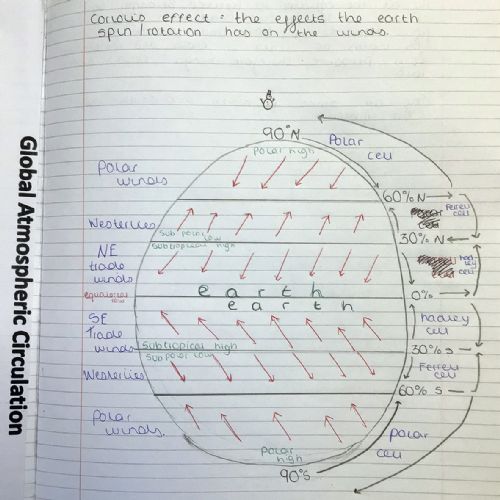 Coriolis effect: the effects the earth
spin/rotation has on the winds.
Global Atmospheric Circulation
90°N
Polar high
Polar
cell
Polar
winds
60% N
Ferrel
cell
Westerlies
Sub polar
low
Subtropical high
30% N
NE
trade
winds
hadley
cell
equatorial
low
earth
0%
earth
SE
Trade
winds
hadley
cell
Subtropical high
30% S
Sub polar low
Westerlies
Ferrel
cell
60% S
Polar
winds.
Polar
cell
Polar
high
90°S